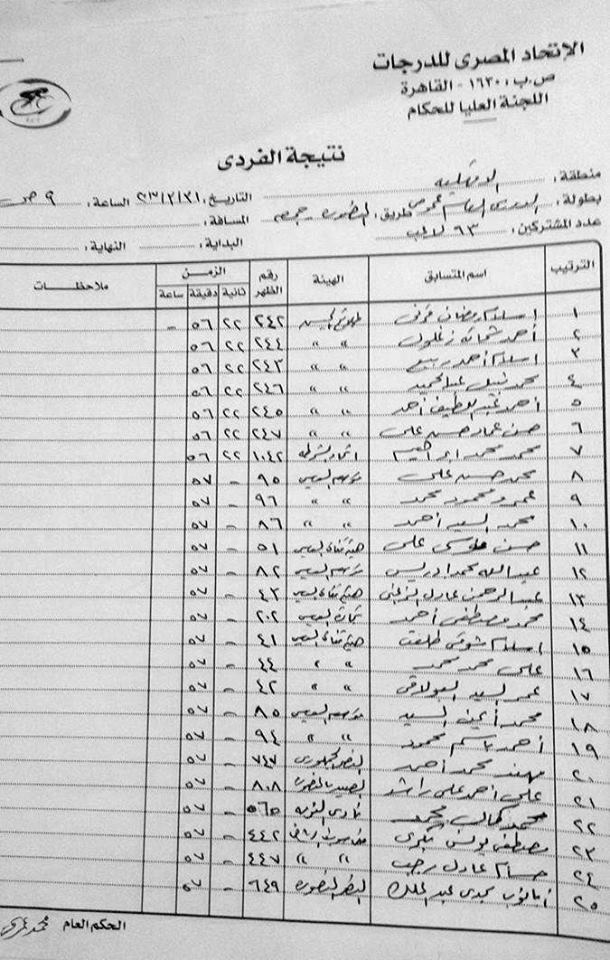 الإتحاد المصرى للدرجات
ص.ب: ١٦٣٠ - القاهرة
اللجنة العليا للحكام
نتيجة الفردى
منطقة: الدقهلية التاريخ: ٢٣/٢/٢١ الساعة: ٩ ص
بطولة: طريق: المنصورة - جمصه المسافة:
عدد المشتركين: ٦٣ لاعب البداية: النهاية:
الترتيب اسم المتسابق الهيئة رقم الظهر الزمن ملاحظات
ثانية دقيقة ساعة
١ اسلام رمضان ٢٤٢ ٢٢ ٥٦ -
٢ أحمد شحاته زغلول " " ٢٤٤ ٢٢ ٥٦
٣ اسلام أحمد ربيع " " ٢٤٣ ٢٢ ٥٦
٤ محمد نبيل عبدالحميد " " ٢٤٦ ٢٢ ٥٦
٥ أحمد عبداللطيف أحمد " " ٢٤٥ ٢٢ ٥٦
٦ حسن عماد حسن على " " ٢٤٧ ٢٢ ٥٦
٧ محمد محمد ابراهيم اتحاد الشرطه ١٠٤٢ ٢٢ ٥٦
٨ محمد حسن على ٩٥ - ٥٧
٩ عمرو محمود محمد " " ٩٦ - ٥٧
١٠ محمد السيد أحمد " " ٨٦ - ٥٧
١١ حسن موسى على هيئة قناة السويس ٥١ - ٥٧
١٢ عبدالله محمد ادريس ٨٢ - ٥٧
١٣ عبدالرحمن عادل هيئة قناة السويس ٤٣ - ٥٧
١٤ محمد مصطفى أحمد السويس ٢٠٢ - ٥٧
١٥ اسلام شوقى طلعت هيئة قناة السويس ٤١ - ٥٧
١٦ على محمد محمد " " ٤٤ - ٥٧
١٧ عمر السيد " " ٤٢ - ٥٧
١٨ محمد أيمن السيد ٨٥ - ٥٧
١٩ أحمد باسم محمود " " ٩٤ - ٥٧
٢٠ مهند محمد أحمد ٧٤٧ - ٥٧
٢١ على أحمد على راشد ٨٠٨ - ٥٧
٢٢ محمد كمال محمد ٥٦٥ - ٥٧
٢٣ مصطفى يونس ٤٤٢ - ٥٧
٢٤ حسام عادل رجب " " ٤٤٧ - ٥٧
٢٥ مجدى عبدالملك المنصورة ٦٤٩ - ٥٧
الحكم العام